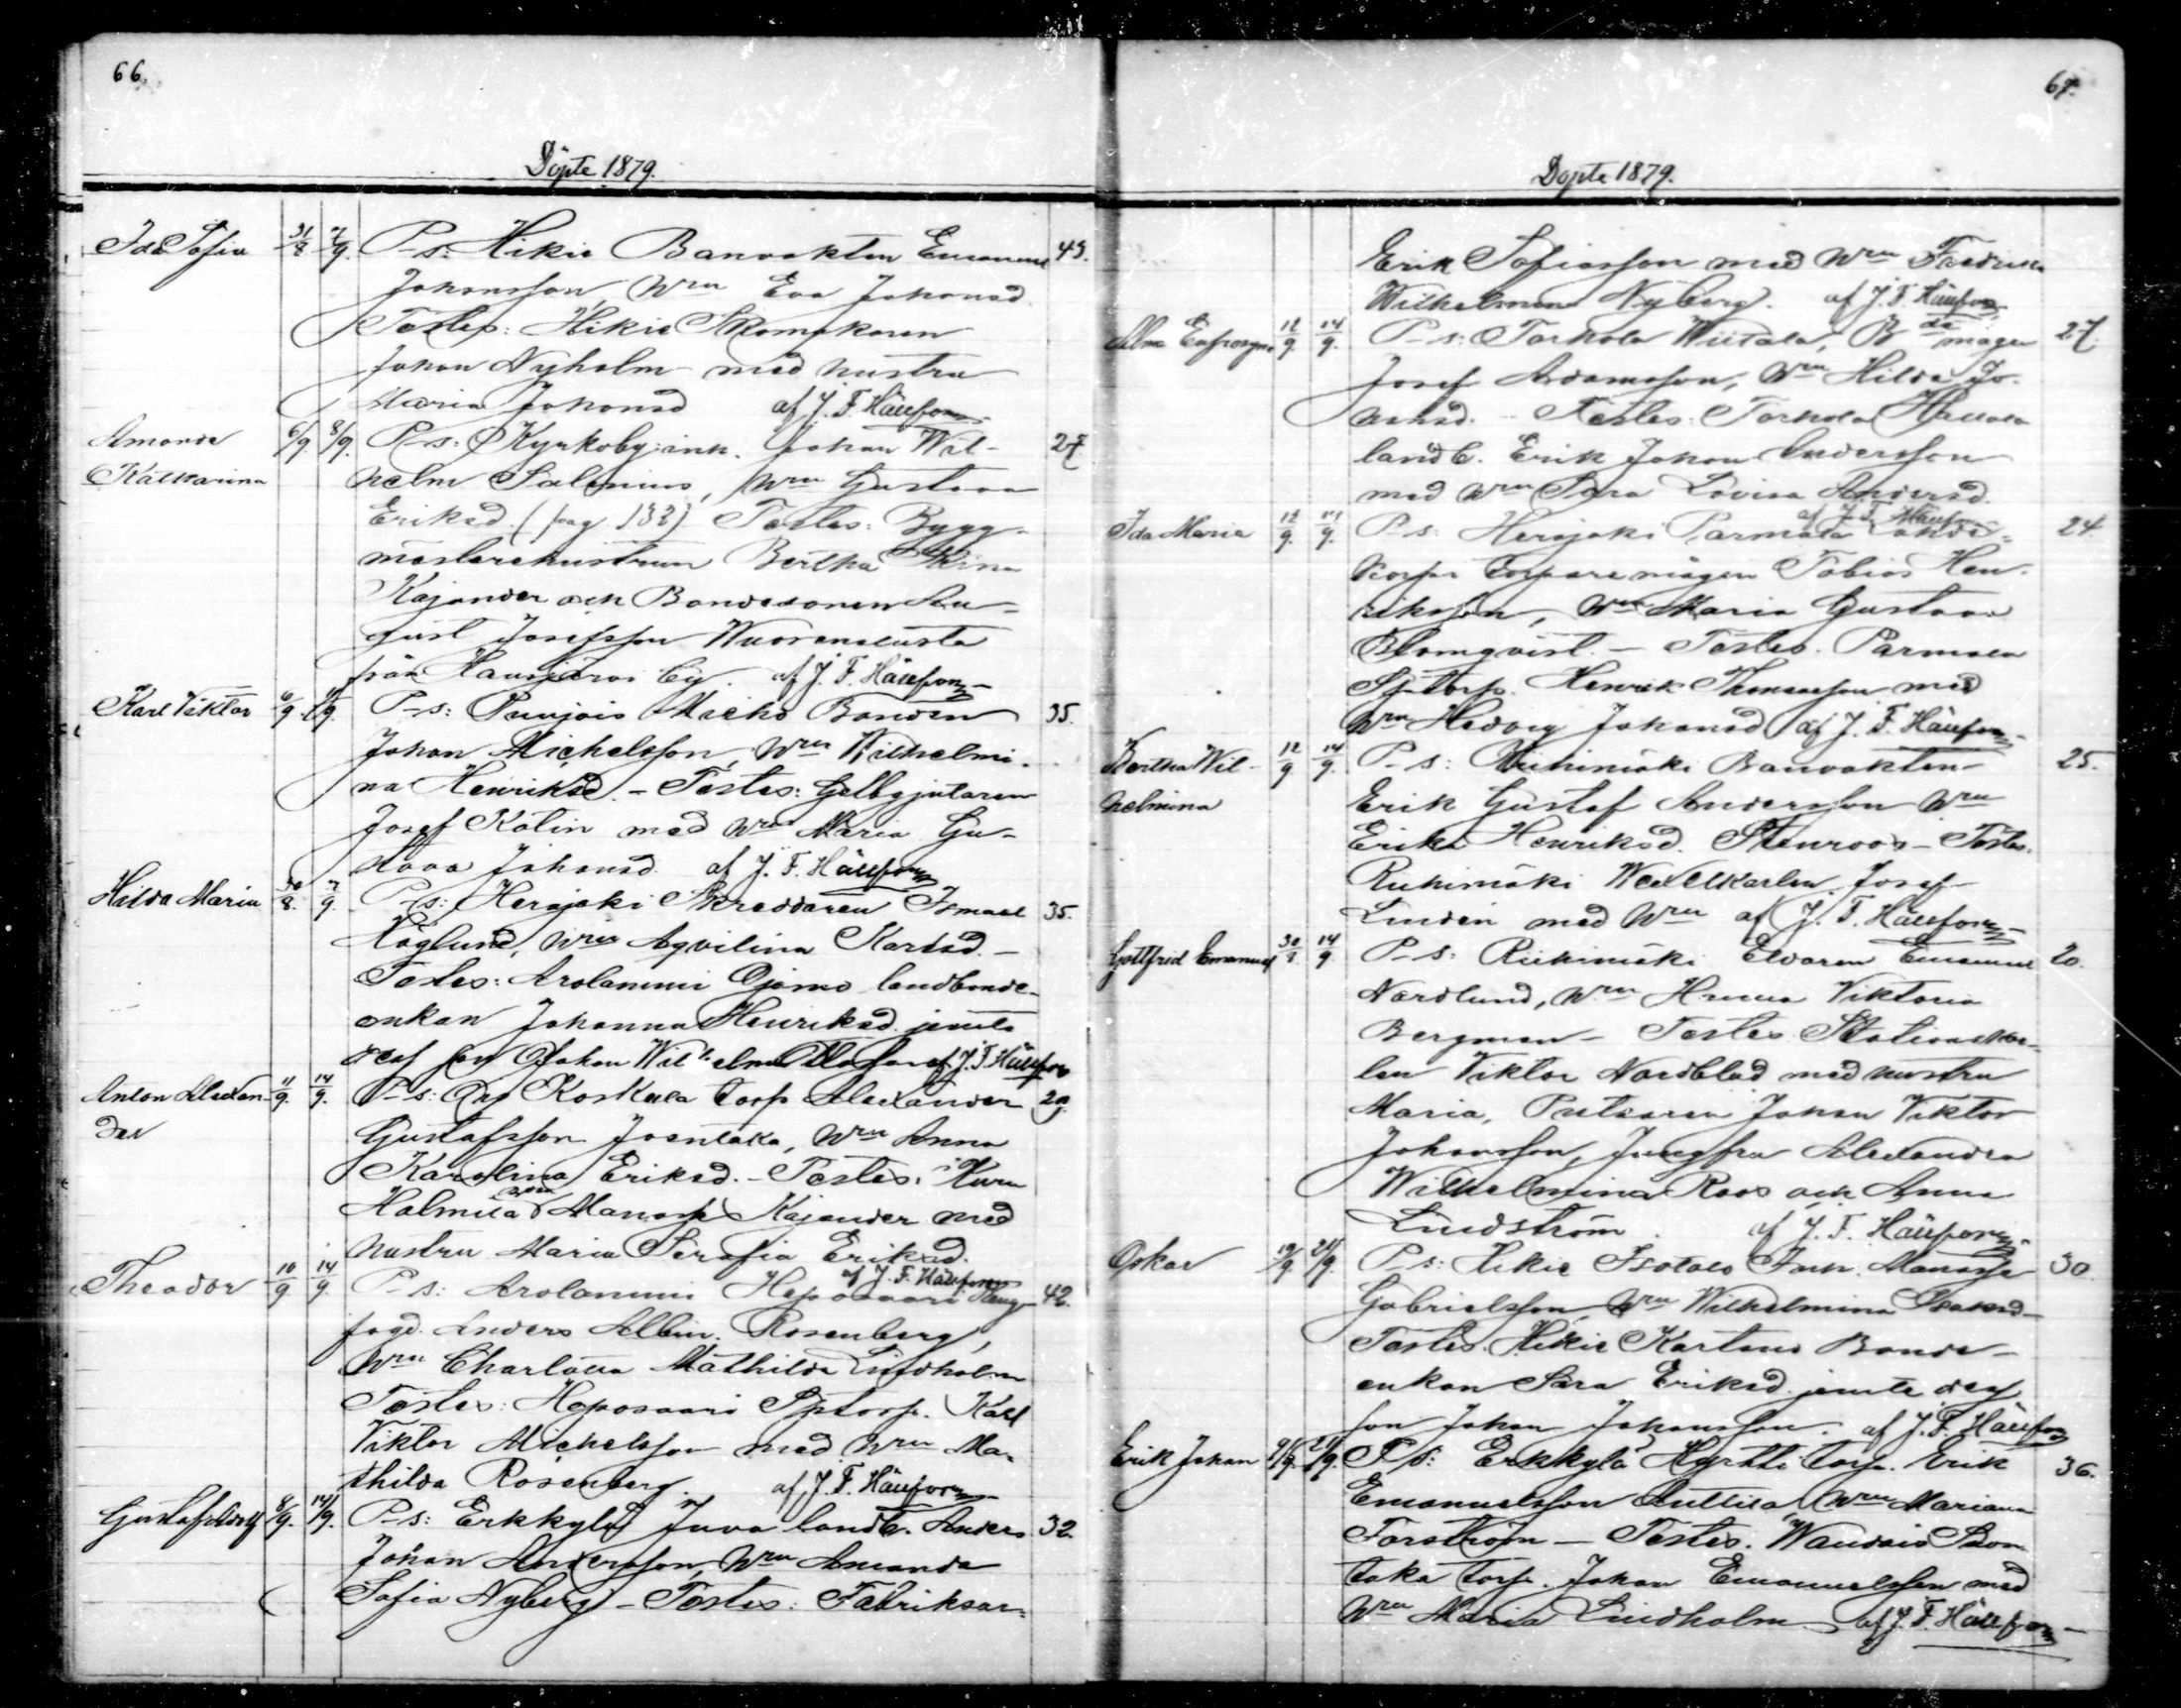 66.
Döpte 1879.
Ida Sofia 31/8 7/9 P-s: Hikie Banvakten Emanuel 43.
Johansson, Wru Eva Johansd.
Testes: Hikie Skomakaren
Johan Nyholm med hustru
Maria Johansd af J. F. Hällfors
Amanda 6/9 8/9 P-s: Kyrkoby inh. Johan Wil- 27
Katharina helm Salenius, Wru Gustava
Eriksd. (pag. 132) Testes: Bygg-
mästarehustrun Bertha Stina
Kajander och Bondesonen Au-
gust Josefsson
från Hausjärvi by. af J. F. Hällfors
Karl Viktor 6/9 P-s: Punjois Bonden 35.
Johan Michelsson, Wru Wilhelmi-
na Henriksd. - Testes: Gelbgjutaren
Josef Kölin med Wru Maria Gu-
stava Johansd. af J. F. Hällfors
Hilda Maria 30/8. 7/9. P-s: Herajoki Skreddaren Ismael 35.
Höglund, Wru Aqvilina Karlsd. -
Testes: Arolammi Ojamo landbonde-
enkan Johanna Henriksd. jemte
des son Johan Wilhelm af J. F. Hällfors
Anton Alexan- 11/9. 14/9. P-s: Koskela torp. Alexander 29.
der Gustafsson Joentaka, Wru Anna
Karolina Eriksd. - Testes:
Manasse Kajander med
hustru Maria Serafia Eriksd.
af J. F. Hällfors
Theodor 10/9 14/9 P-s: Arolammi Heposaari 42.
fogd. Anders Albin Rosenberg,
Wru Charlotta Mathilda Lindholm
Testes: Heposaari Sptorp. Karl
Viktor Michelsson med Wru Ma-
thilda Rosenberg. af J. F. Hällfors
Gustaf Adolf 8/9. 14/9. P-s: Erkkylä Juva landb. Anders 32
Johan Andersson, Wru Amanda
Sofia Nyberg - Testes: Fabriksar-
67.
Döpte 1879.
Erik Sofiasson med Wru Fredrika
Wilhelmina Nyberg. af J. F. Hällfors
Alma Eufrosyne 12/9. 14/9. P-s: Torhola Wiitala, Bdemågen 27.
Josef Adamsson, Wru Hilda Jo-
hansd. - Testes: Torhola
landb. Erik Johan Andersson
med Wru Sara Lovisa Andersd.
af J. F. Hällfors
Ida Maria 12/9. 14/9. P-s: Herajoki Parmala 24
torparemågen Tobias Hen-
riksson, Wru Maria Gustava
Blomqvist. - Testes. Parmala
Sptorp. Henrik Thomasson med
Wru Hedvig Johansd af J. F. Hällfors
Bertha Wil- 12/9 14/9. P-s: Riihimäki Banvakten 25.
helmina Erik Gustaf Andersson Wru
Erika Henriksd. Stenroos - Testes.
Riihimäki Wexelkarlen Josef
Lindén med Wru af J. F. Hällfors
Gottfrid Emanuel 30/8 14/9 P-s: Riihimäki Eldaren Emanuel 20.
Nordlund, Wru Viktoria
Bergman - Testes. Stationskar-
len Viktor Nordblad med hustru
Maria, Putsaren Johan Viktor
Johansson, Jungfru Alexandra
Wilhelmina Roos och Anna
Lindström. af J. F. Hällfors
Oskar 19/9. 21/9 P-s: Hikie Isotalo Inh. Manasse 30.
Gabrielsson, Wru Wilhelmina Isaksd -
Testes. Hikie Kartano Bonde-
enkan Sara Eriksd. jemte des
son Johan Johansson. af J. F. Hällfors
Erik Johan 21/9. P-s: Erkkylä Myrtti torp. Erik 36.
Emanuelsson Anttila, Wru Mariana
Forström - Testes.
taka torp. Johan Emanuelsson med
Wru Maria Lindholm af J. F. Hällfors